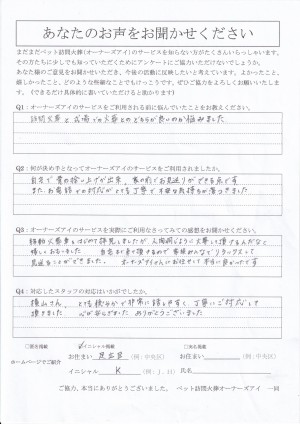 あなたのお声をお聞かせください
まだまだペット訪問火葬(オーナーズアイ)のサービスを知らない方がたくさんいらっしゃいます。
その方たちにも少しでも知っていただくためにアンケートにご協力いただけないでしょうか。
あなた様のご意見をお聞かせいただき、今後の活動に反映したいと考えています。よかったこと、
嬉しかったこと、どのような些細なことでもけっこうです。ぜひご協力をよろしくお願いいたしま
す。(できるだけ具体的に書いていただけると助かります)
Q1:オーナーズアイのサービスをご利用される前に悩んでいたことをお教えください。
訪問火葬と式場での火葬とのどちらが良いのか悩みました
Q2:何が決め手となってオーナーズアイのサービスをご利用されましたか。
自宅で骨の拾い上げが出来、家の前でお見送りができる点です
また、お電話での対応がとても丁寧で不安な気持ちが落ちつきました
Q3:オーナーズアイのサービスを実際にご利用なさってみての感想をお聞かせください。
移動火葬車をはじめて拝見しましたが、人間同じように火葬して頂けるんだなと
嬉しくおもいました
見送ることができました。オーナーズアイさんにお任せして本当に良かったです
Q4:対応したスタッフの対応はいかがでしたか。
横山さん、とても穏やかで非常に話しやすく、丁寧にご対応して
頂きました 心が安らぎました ありがとうございました
□匿名掲載
☑イニシャル掲載
□実名掲載
ホームページでご紹介
お住まい 足立区 (例:中央区)
お住まい (例:中央区)
イニシャル K (例:J.H)
氏名
ご協力、本当にありがとうございました。 ペット訪問火葬オーナーズアイ 一同